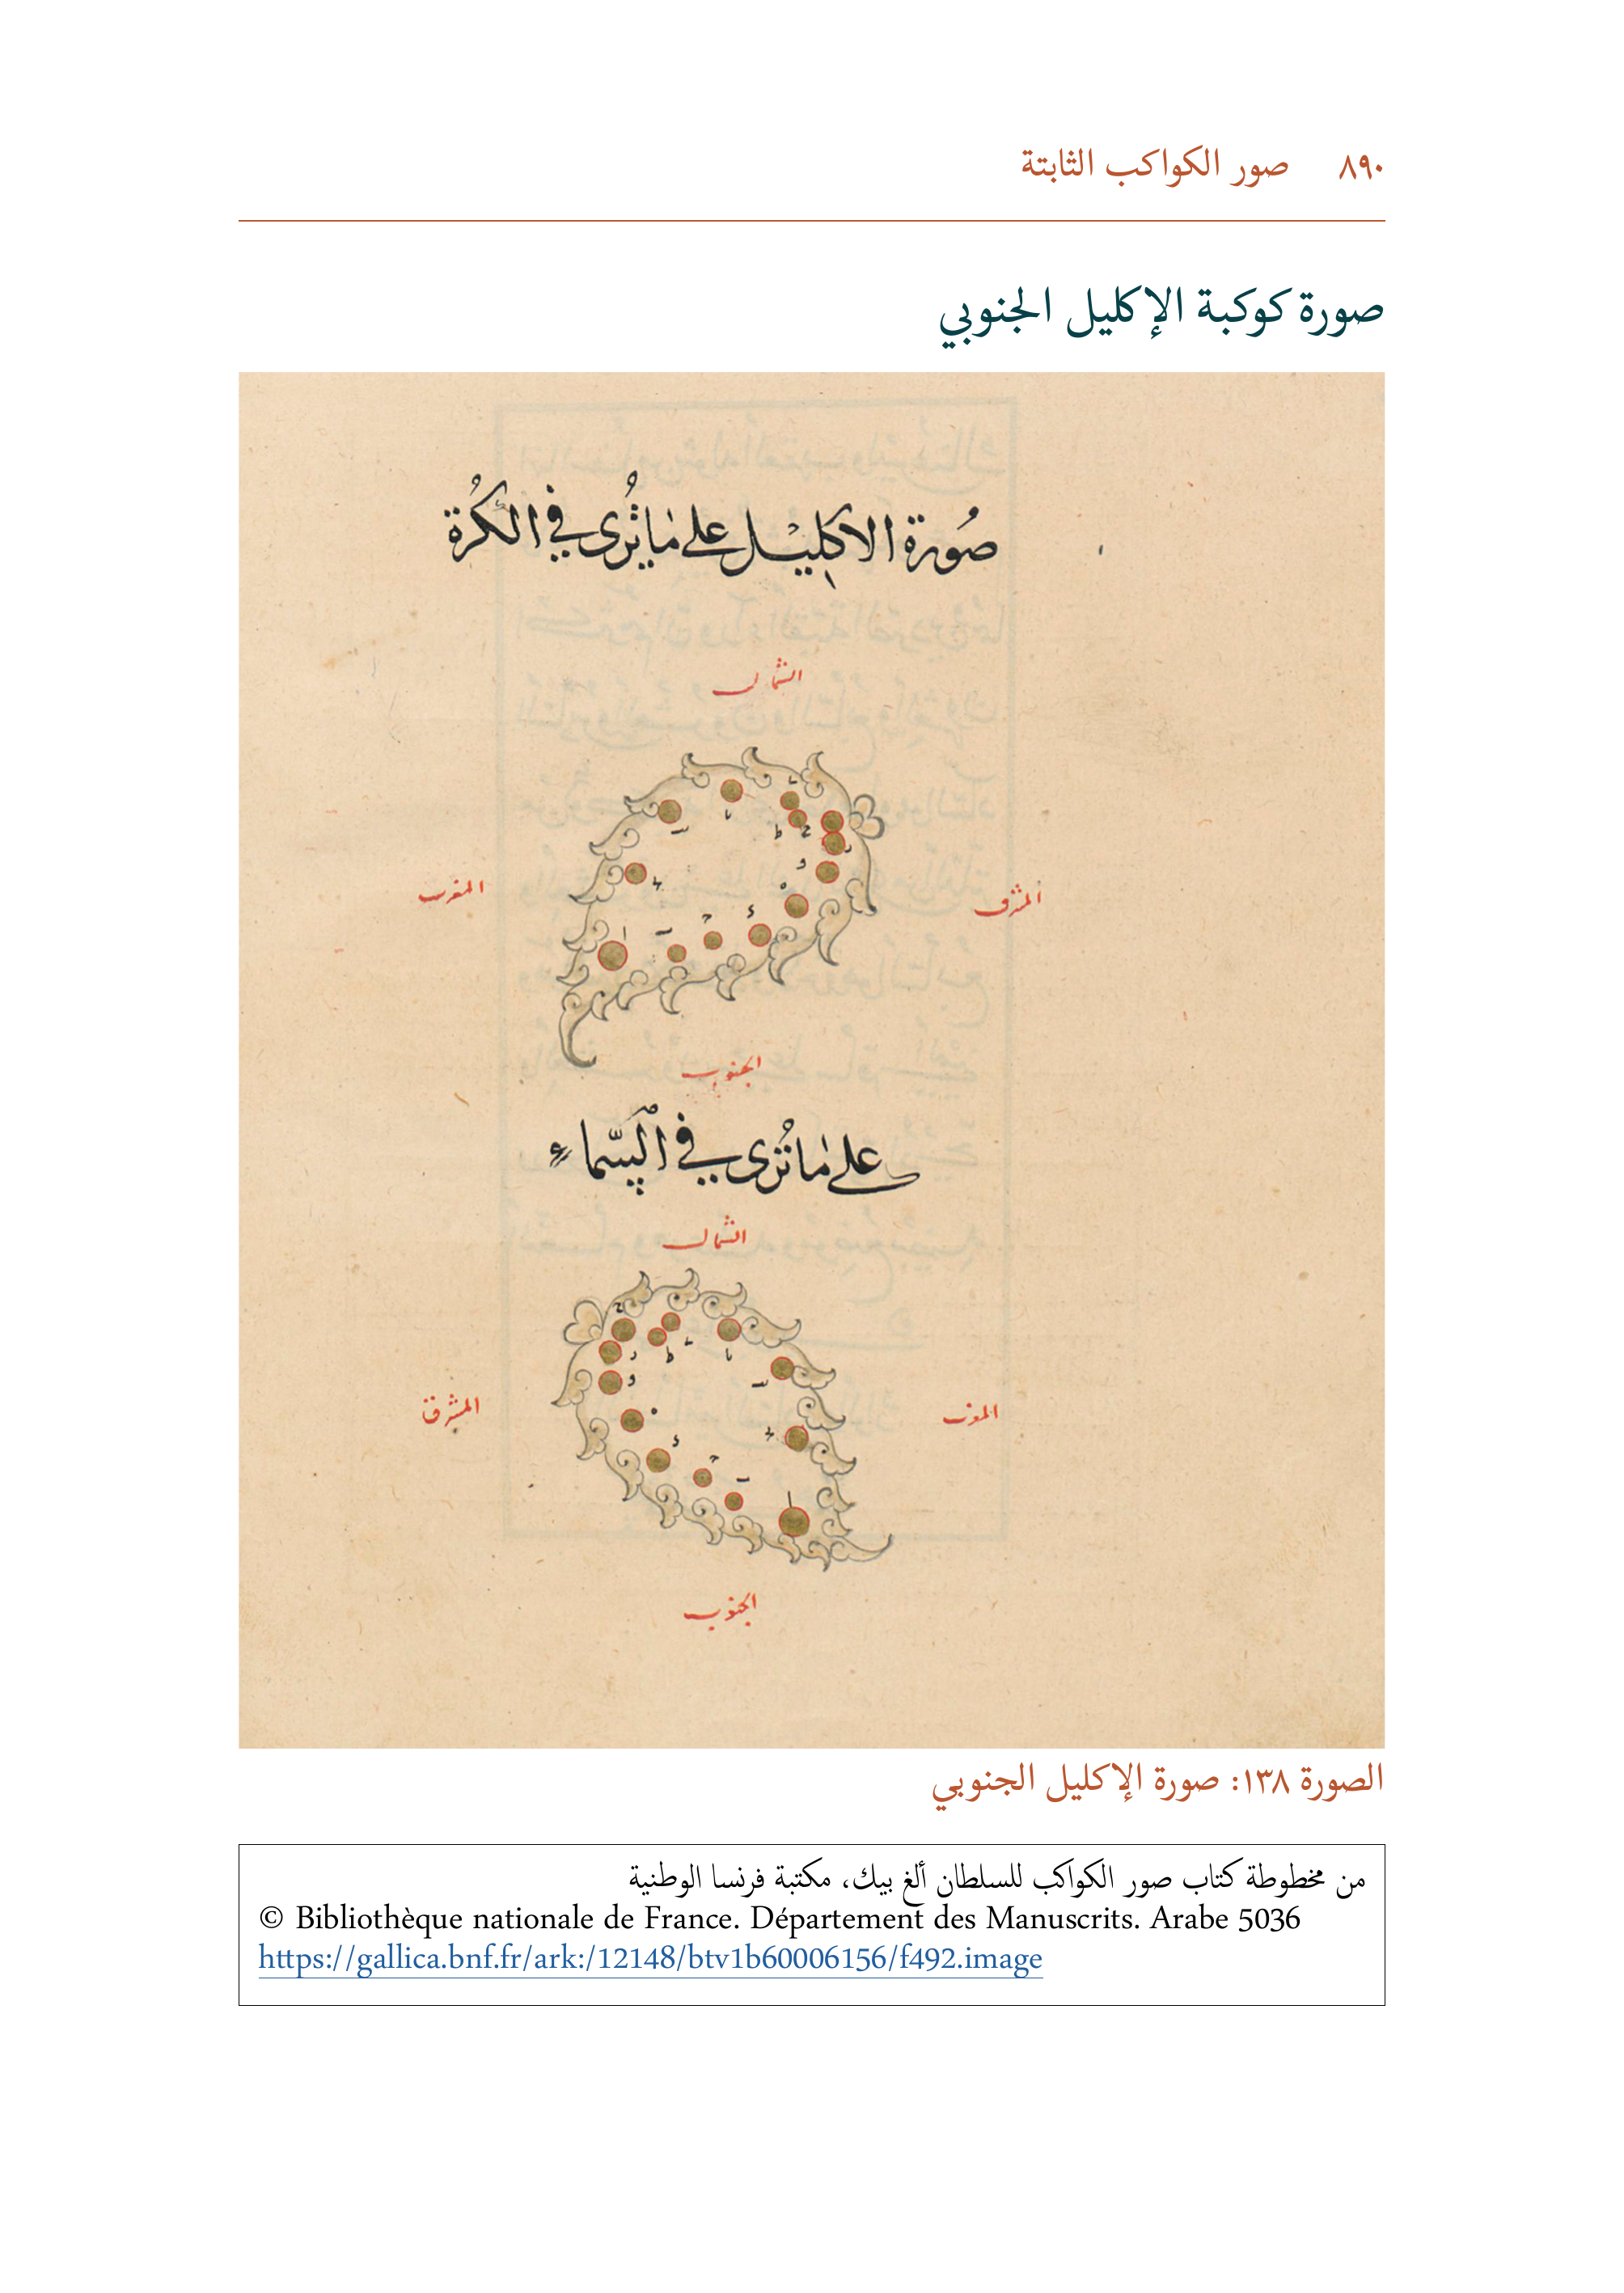 ٨٩٠ صور الكواكب الثابتة
صورة كوكبة الإكليل الجنوبي
صُورة الاكِليْل على مٰا يُرى في الكُرة
الشمال
المغرب
المشرق
الجنوب
على مٰا تُرى في السَّماء
الشمال
المشرق
المغرب
الجنوب
الصورة ١٣٨: صورة الإكليل الجنوبي
من مخطوطة كتاب صور الكواكب للسلطان ألغ بيك، مكتبة فرنسا الوطنية
© Bibliothèque nationale de France. Département des Manuscrits. Arabe 5036
https://gallica.bnf.fr/ark:/12148/btv1b60006156/f492.image